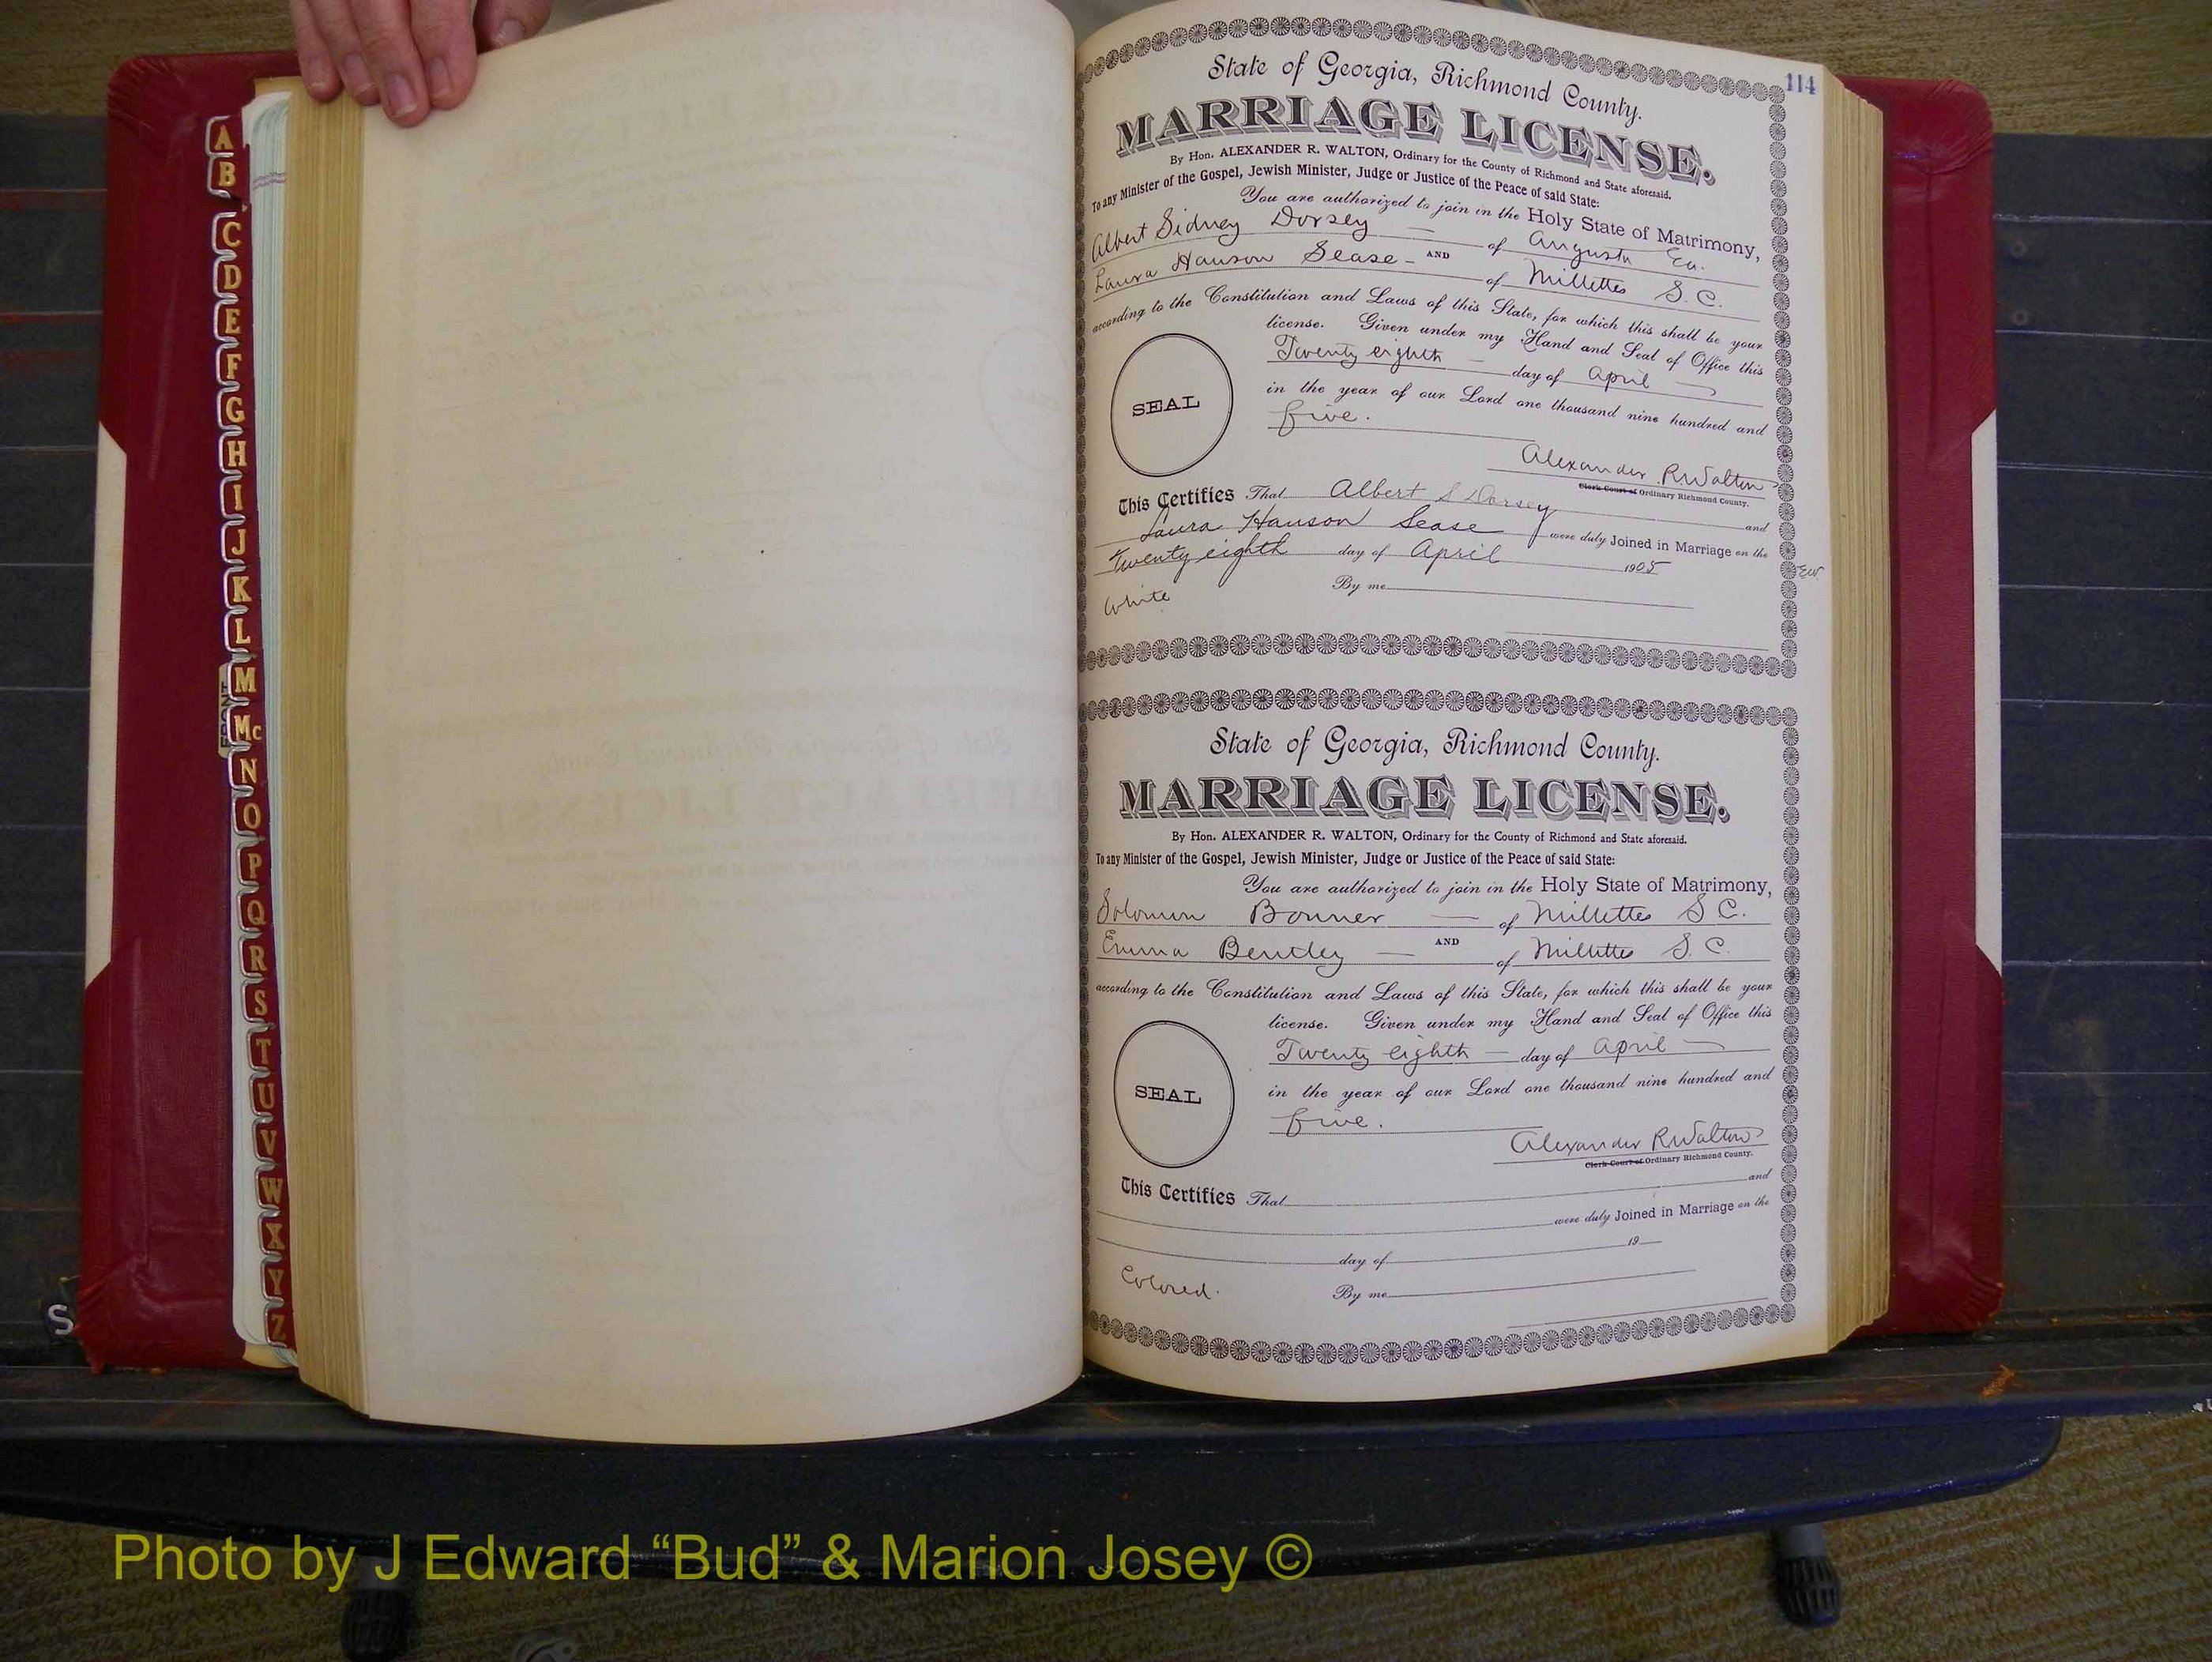 A
B
C
D
E
F
G
H
I
J
K
L
M
Mc
N
O
P
Q
R
S
T
U
V
W
X
Y
Z
114
State of Georgia, Richmond County.
MARRIAGE LICENSE.
By Hon. ALEXANDER R. WALTON, Ordinary for the County of Richmond and State aforesaid.
To any Minister of the Gospel, Jewish Minister, Judge or Justice of the Peace of said State:
You are authorized to join in the Holy State of Matrimony,
Albert Sidney Dorsey — of Augusta Ga.
AND
Laura Hanson Sease - of Millettes S.C.
according to the Constitution and Laws of this State, for which this shall be your
license. Given under my Hand and Seal of Office this
Twenty eighth — day of April
in the year of our Lord one thousand nine hundred and
five.
SEAL
Alexander R Walton
Clerk Court of Ordinary Richmond County.
This Certifies That Albert S Dorsey and
Laura Hanson Sease were duly Joined in Marriage on the
Twenty eighth day of April 1905
By me
White
State of Georgia, Richmond County.
MARRIAGE LICENSE.
By Hon. ALEXANDER R. WALTON, Ordinary for the County of Richmond and State aforesaid.
To any Minister of the Gospel, Jewish Minister, Judge or Justice of the Peace of said State:
You are authorized to join in the Holy State of Matrimony,
Solomon Bonner — of Millettes S C.
AND
Emma Bentley — of Millettes S. C.
according to the Constitution and Laws of this State, for which this shall be your
license. Given under my Hand and Seal of Office this
Twenty eighth — day of April
in the year of our Lord one thousand nine hundred and
five.
SEAL
Alexander R Walton
Clerk Court of Ordinary Richmond County.
This Certifies That and
were duly Joined in Marriage on the
day of 19
By me
Colored.
Photo by J Edward “Bud” & Marion Josey ©